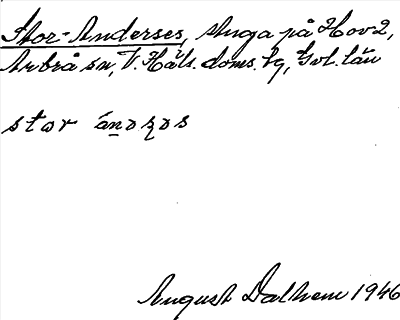 Stor-Anderses, stuga på Hov 2,
Arbrå sn, V. Häls. doms. bg, Gvl. län
stor ánəʐəs
August Dalhem 1946